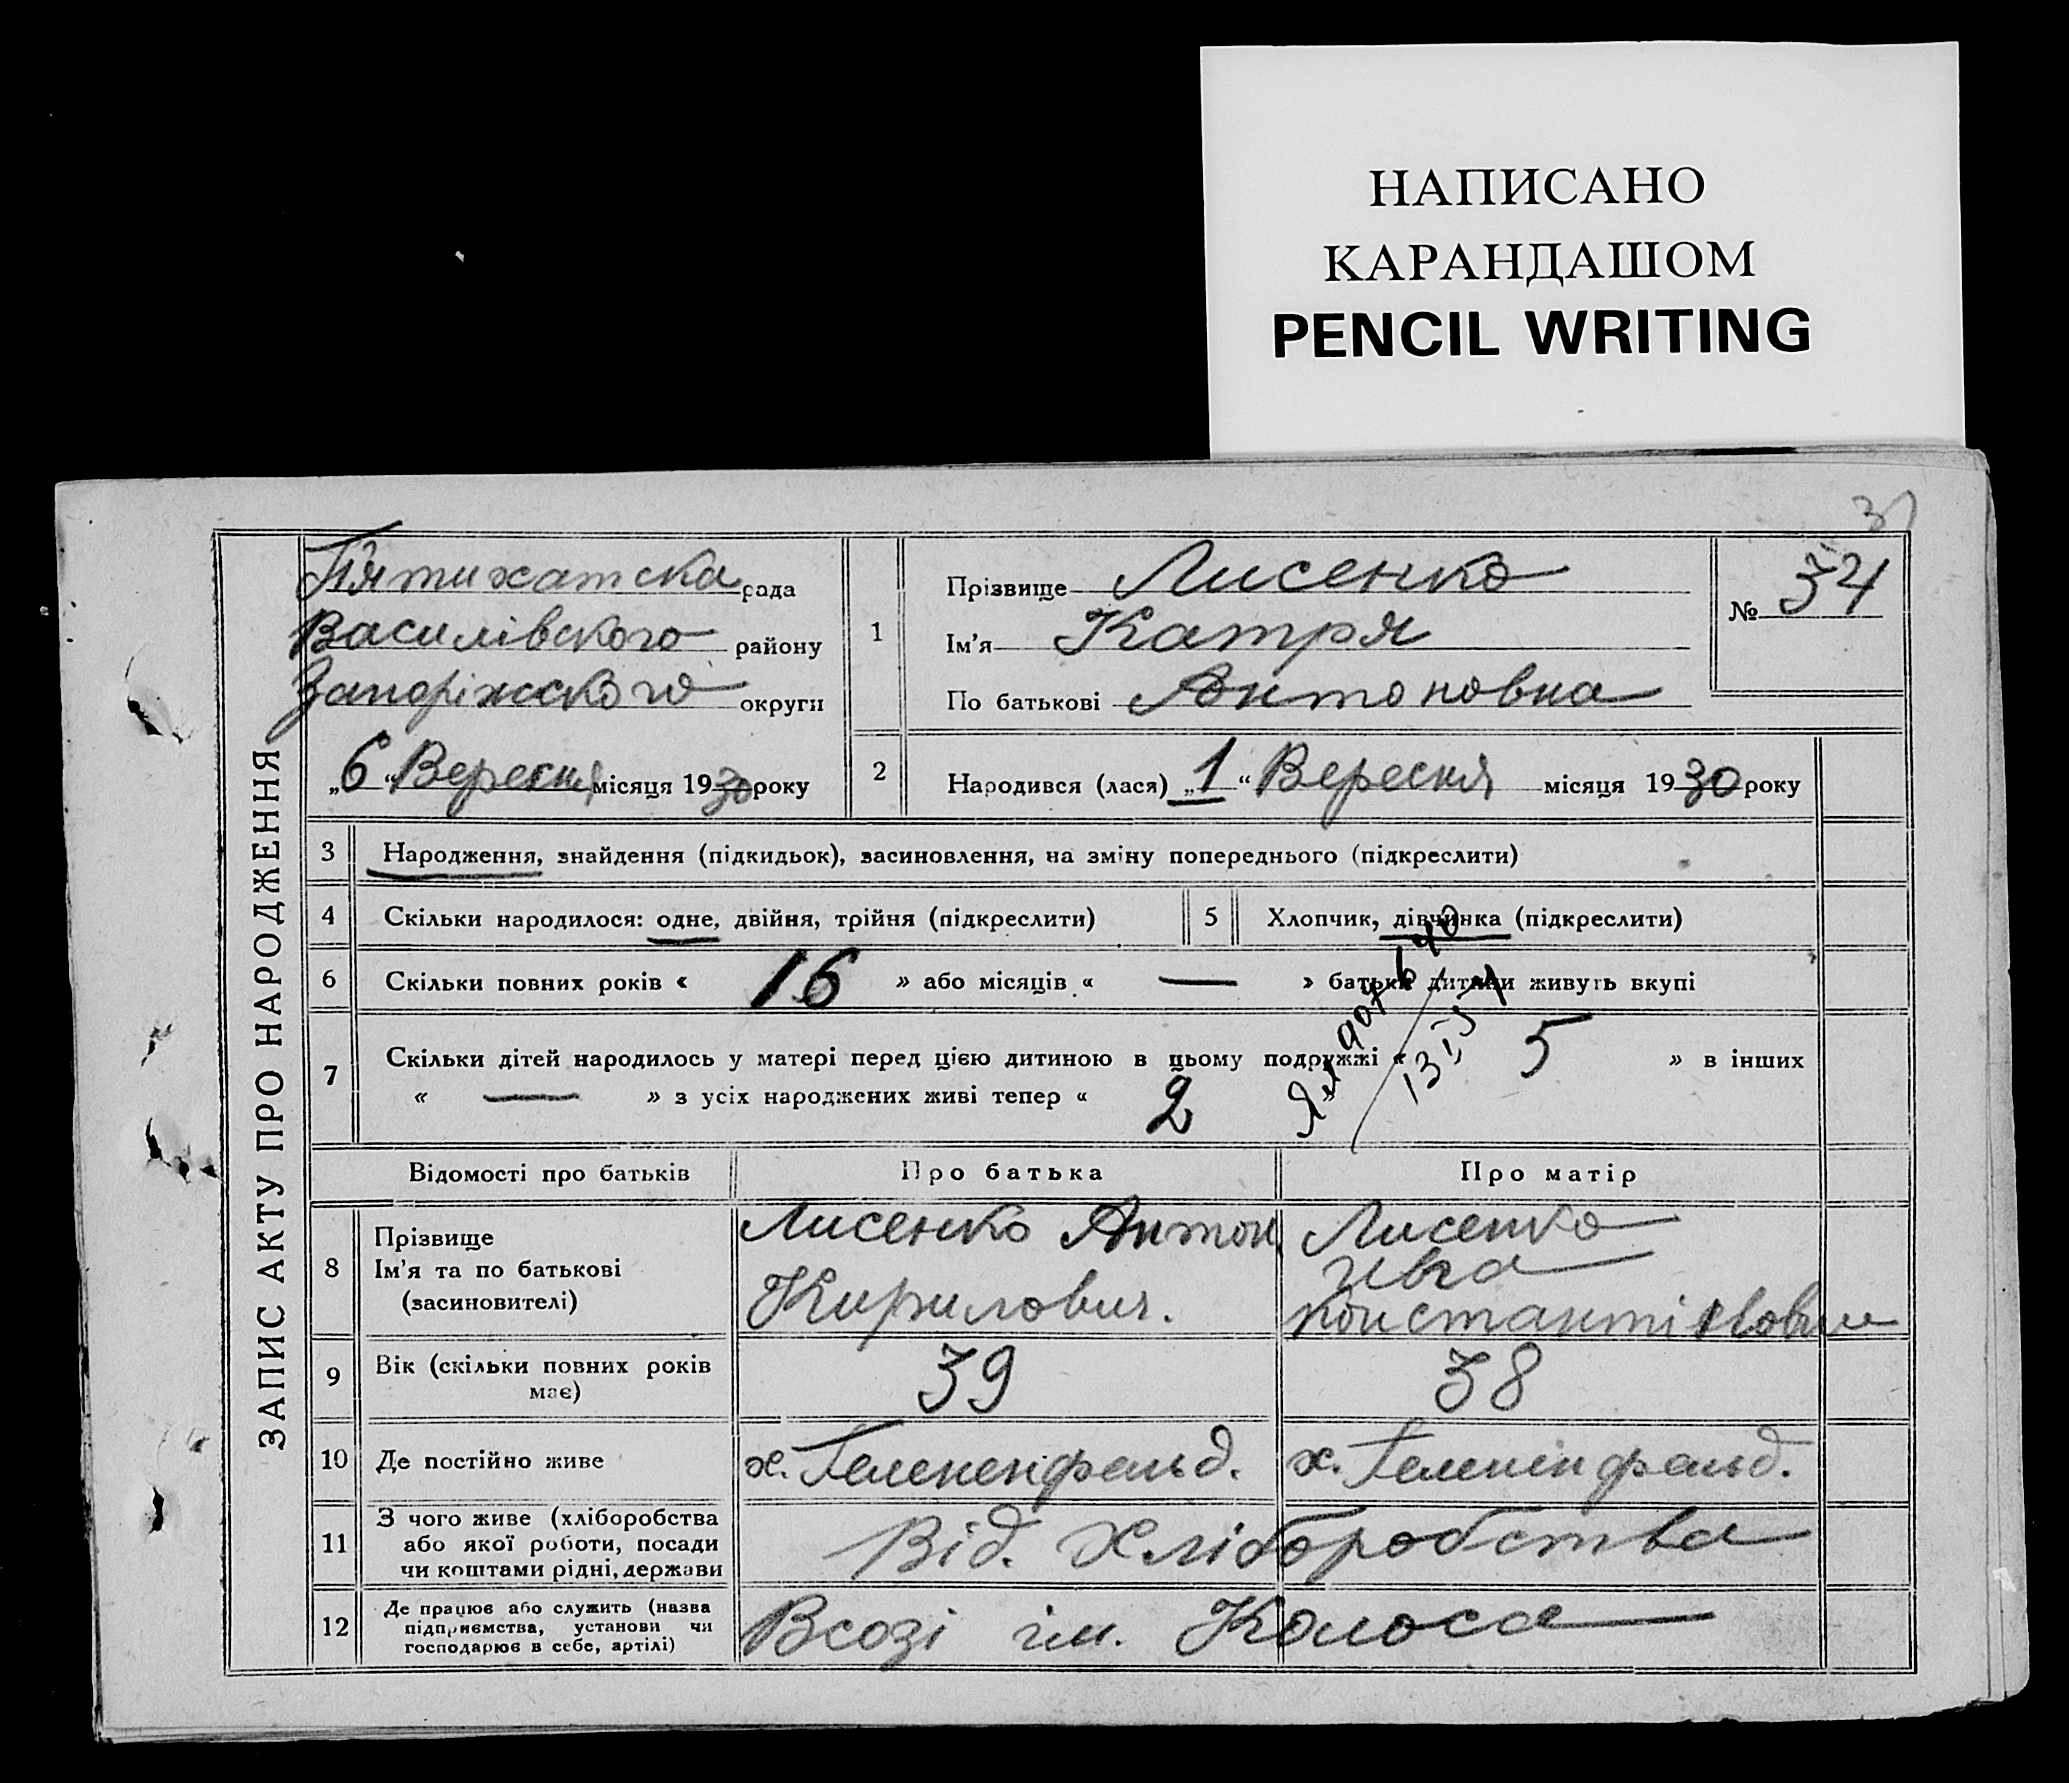 НАПИСАНО
КАРАНДАШОМ
PENCIL WRITING
ЗАПИС АКТУ ПРО НАРОДЖЕННЯ
Пятихатска рада
Василівского району
Запоріжского округи
„6“ Вересня місяця 1930 року
1
Прізвище Лисенко
Ім’я Катря
По батькові Антоновна
№ 34
2 Народився (лася) „1“ Вересня місяця 1930 року
3 Народження, знайдення (підкидьок), засиновлення, на зміну попереднього (підкреслити)
4 Скільки народилося: одне, двійня, трійня (підкреслити)
5 Хлопчик, дівчинка (підкреслити)
6 Скільки повних років « 16 » або місяців « — » батьки дитини живуть вкупі
7 Скільки дітей народилось у матері перед цією дитиною в цьому подружжі « 5 » в інших
« — » з усіх народжених живі тепер « 2 »
Відомості про батьків Про батька Про матір
8 Прізвище
Ім’я та по батькові
(засиновителі)
Лисенко Антон
Кирилович.
Лисенко
Івга
Константіновна
9 Вік (скільки повних років
має)
39
38
10 Де постійно живе
х. Гелененфельд.
х. Геленінфельд.
11 З чого живе (хліборобства
або якої роботи, посади
чи коштами рідні, держави
Від. Хліборобства
12 Де працює або служить (назва
підприємства, установи чи
господарює в себе, артілі)
Всозі ім. Колоса